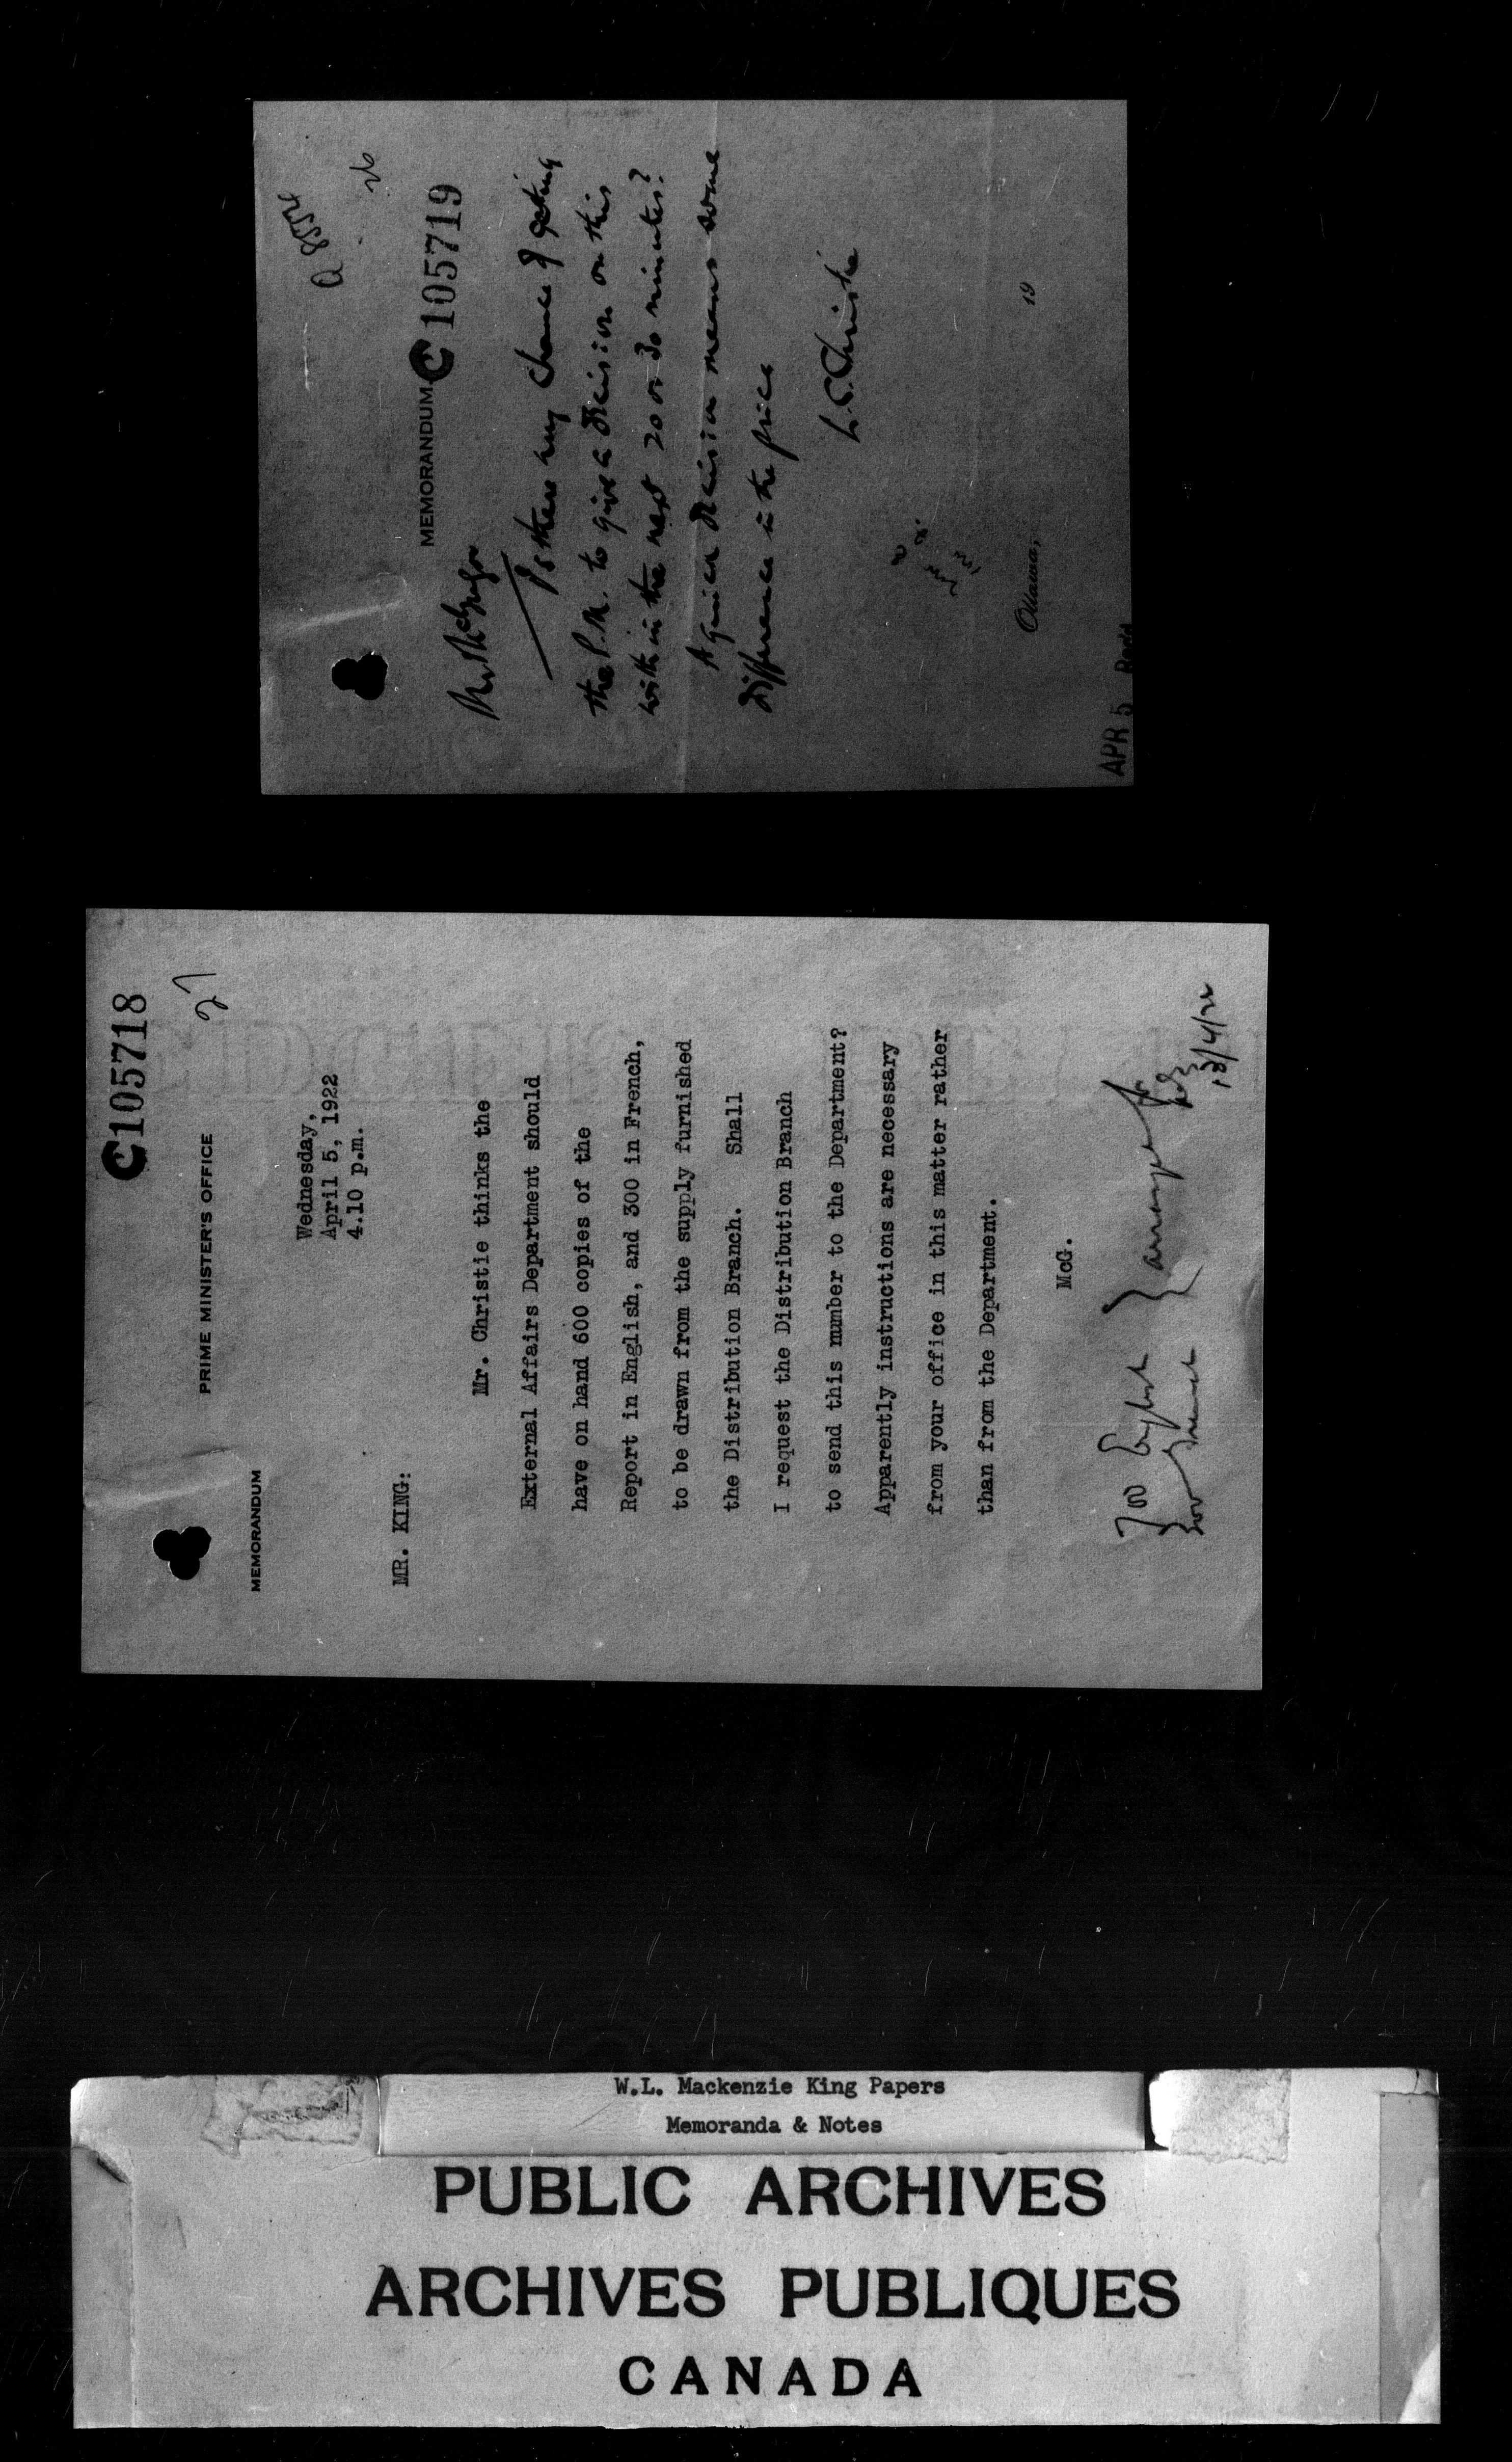 Q 8524
26
MEMORANDUM
C105719
Mr McGregor
Is there any chance of getting
the P.M. to give a decision on this
within the next 20 or 30 minutes?
A quick decision means some
difference in the price
L.C. Christie
Ottawa, 19
APR 5 Recd
C105718
27
PRIME MINISTER'S OFFICE
MEMORANDUM
Wednesday,
April 5, 1922
4.10 p.m.
MR. KING:
Mr. Christie thinks the
External Affairs Department should
have on hand 600 copies of the
Report in English, and 300 in French,
to be drawn from the supply furnished
the Distribution Branch. Shall
I request the Distribution Branch
to send this number to the Department?
Apparently instructions are necessary
from your office in this matter rather
than from the Department.
McG.
700 English
French
arrange for
W.L. Mackenzie King Papers
Memoranda & Notes
PUBLIC ARCHIVES
ARCHIVES PUBLIQUES
CANADA